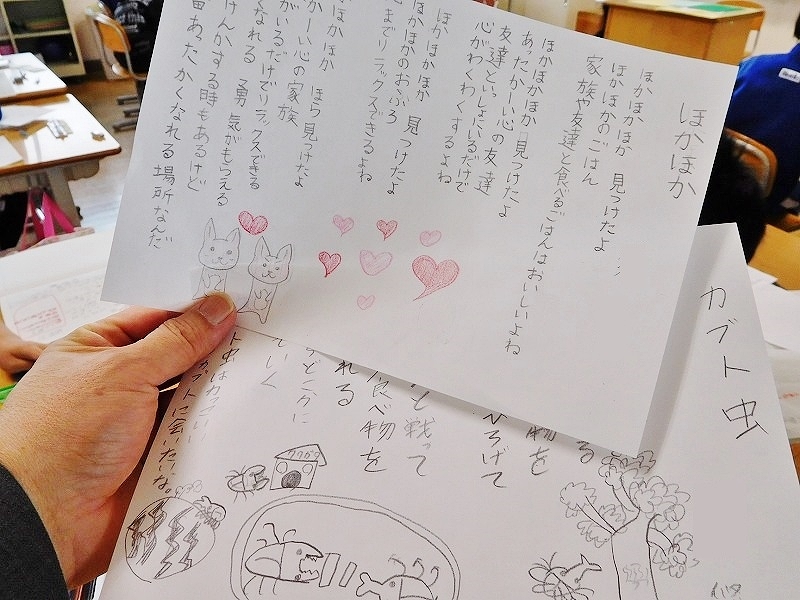 ほかほか
ほかほかほか 見つけたよ
ほかほかのごはん
家族や友達と食べるごはんはおいしいよね
ほかほかほか 見つけたよ
あたたかーい心の友達
友達といっしょにいるだけで
心がわくわくするよね
ほかほかほか 見つけたよ
ほかほかのおふろ
までリラックスできるよね
ほかほか ほら見つけたよ
かーい心の家族
がいるだけでリラックスできる
くなれる 勇気がもらえる
けんかする時もあるけど
番あたたかくなれる場所なんだ
カブト虫
る
物を
ひろげて
と戦って
食べ物を
れる
どこかに
いく
ト虫はカッコいい
カブトに会いたいな。